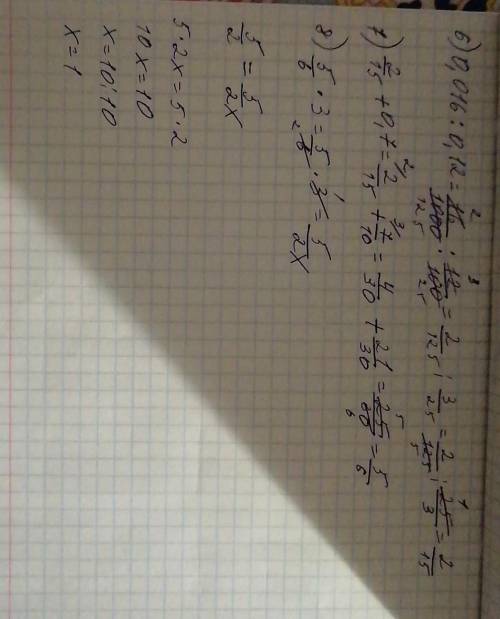 6) 0,016 : 0,12 = 16/1000 : 12/100 = 2/125 : 3/25 = 2/125 · 25/3 = 2/15
7) 2/15 + 0,7 = 2/15 + 7/10 = 4/30 + 21/30 = 25/30 = 5/6
8) 5/6 · 3 = 5/6 · 3 = 5/2x
5/2 = 5/2x
5 · 2x = 5 · 2
10x = 10
x = 10:10
x = 1